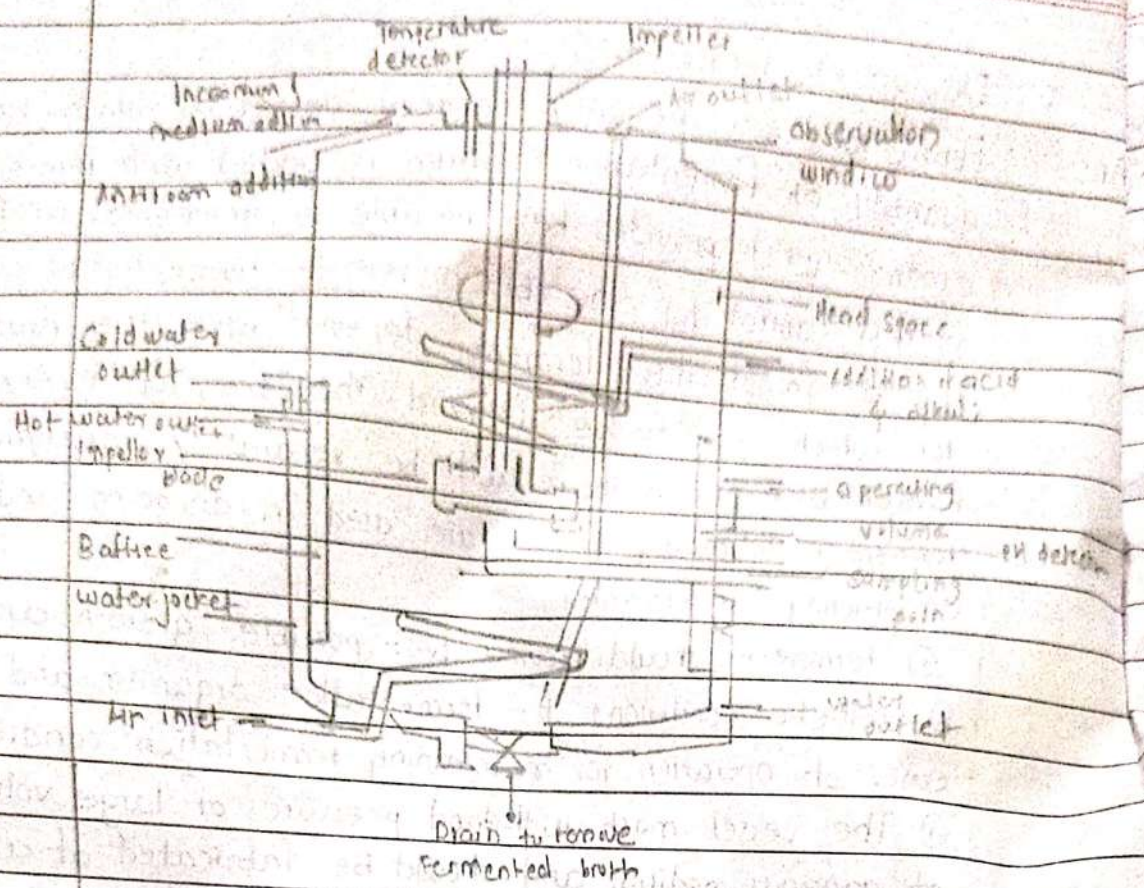 Temperature
detector
Impeller
Incoming
medium addin
Air outlet
Observation
window
Antifoam addition
Head space
Cold water
outlet
addition of acid
& alkali
Hot water outlet
Impellor
blade
operating
volume
Baffree
PH detector
sampling
point
water jacket
Air inlet
water
outlet
Drain to remove
Fermented broth